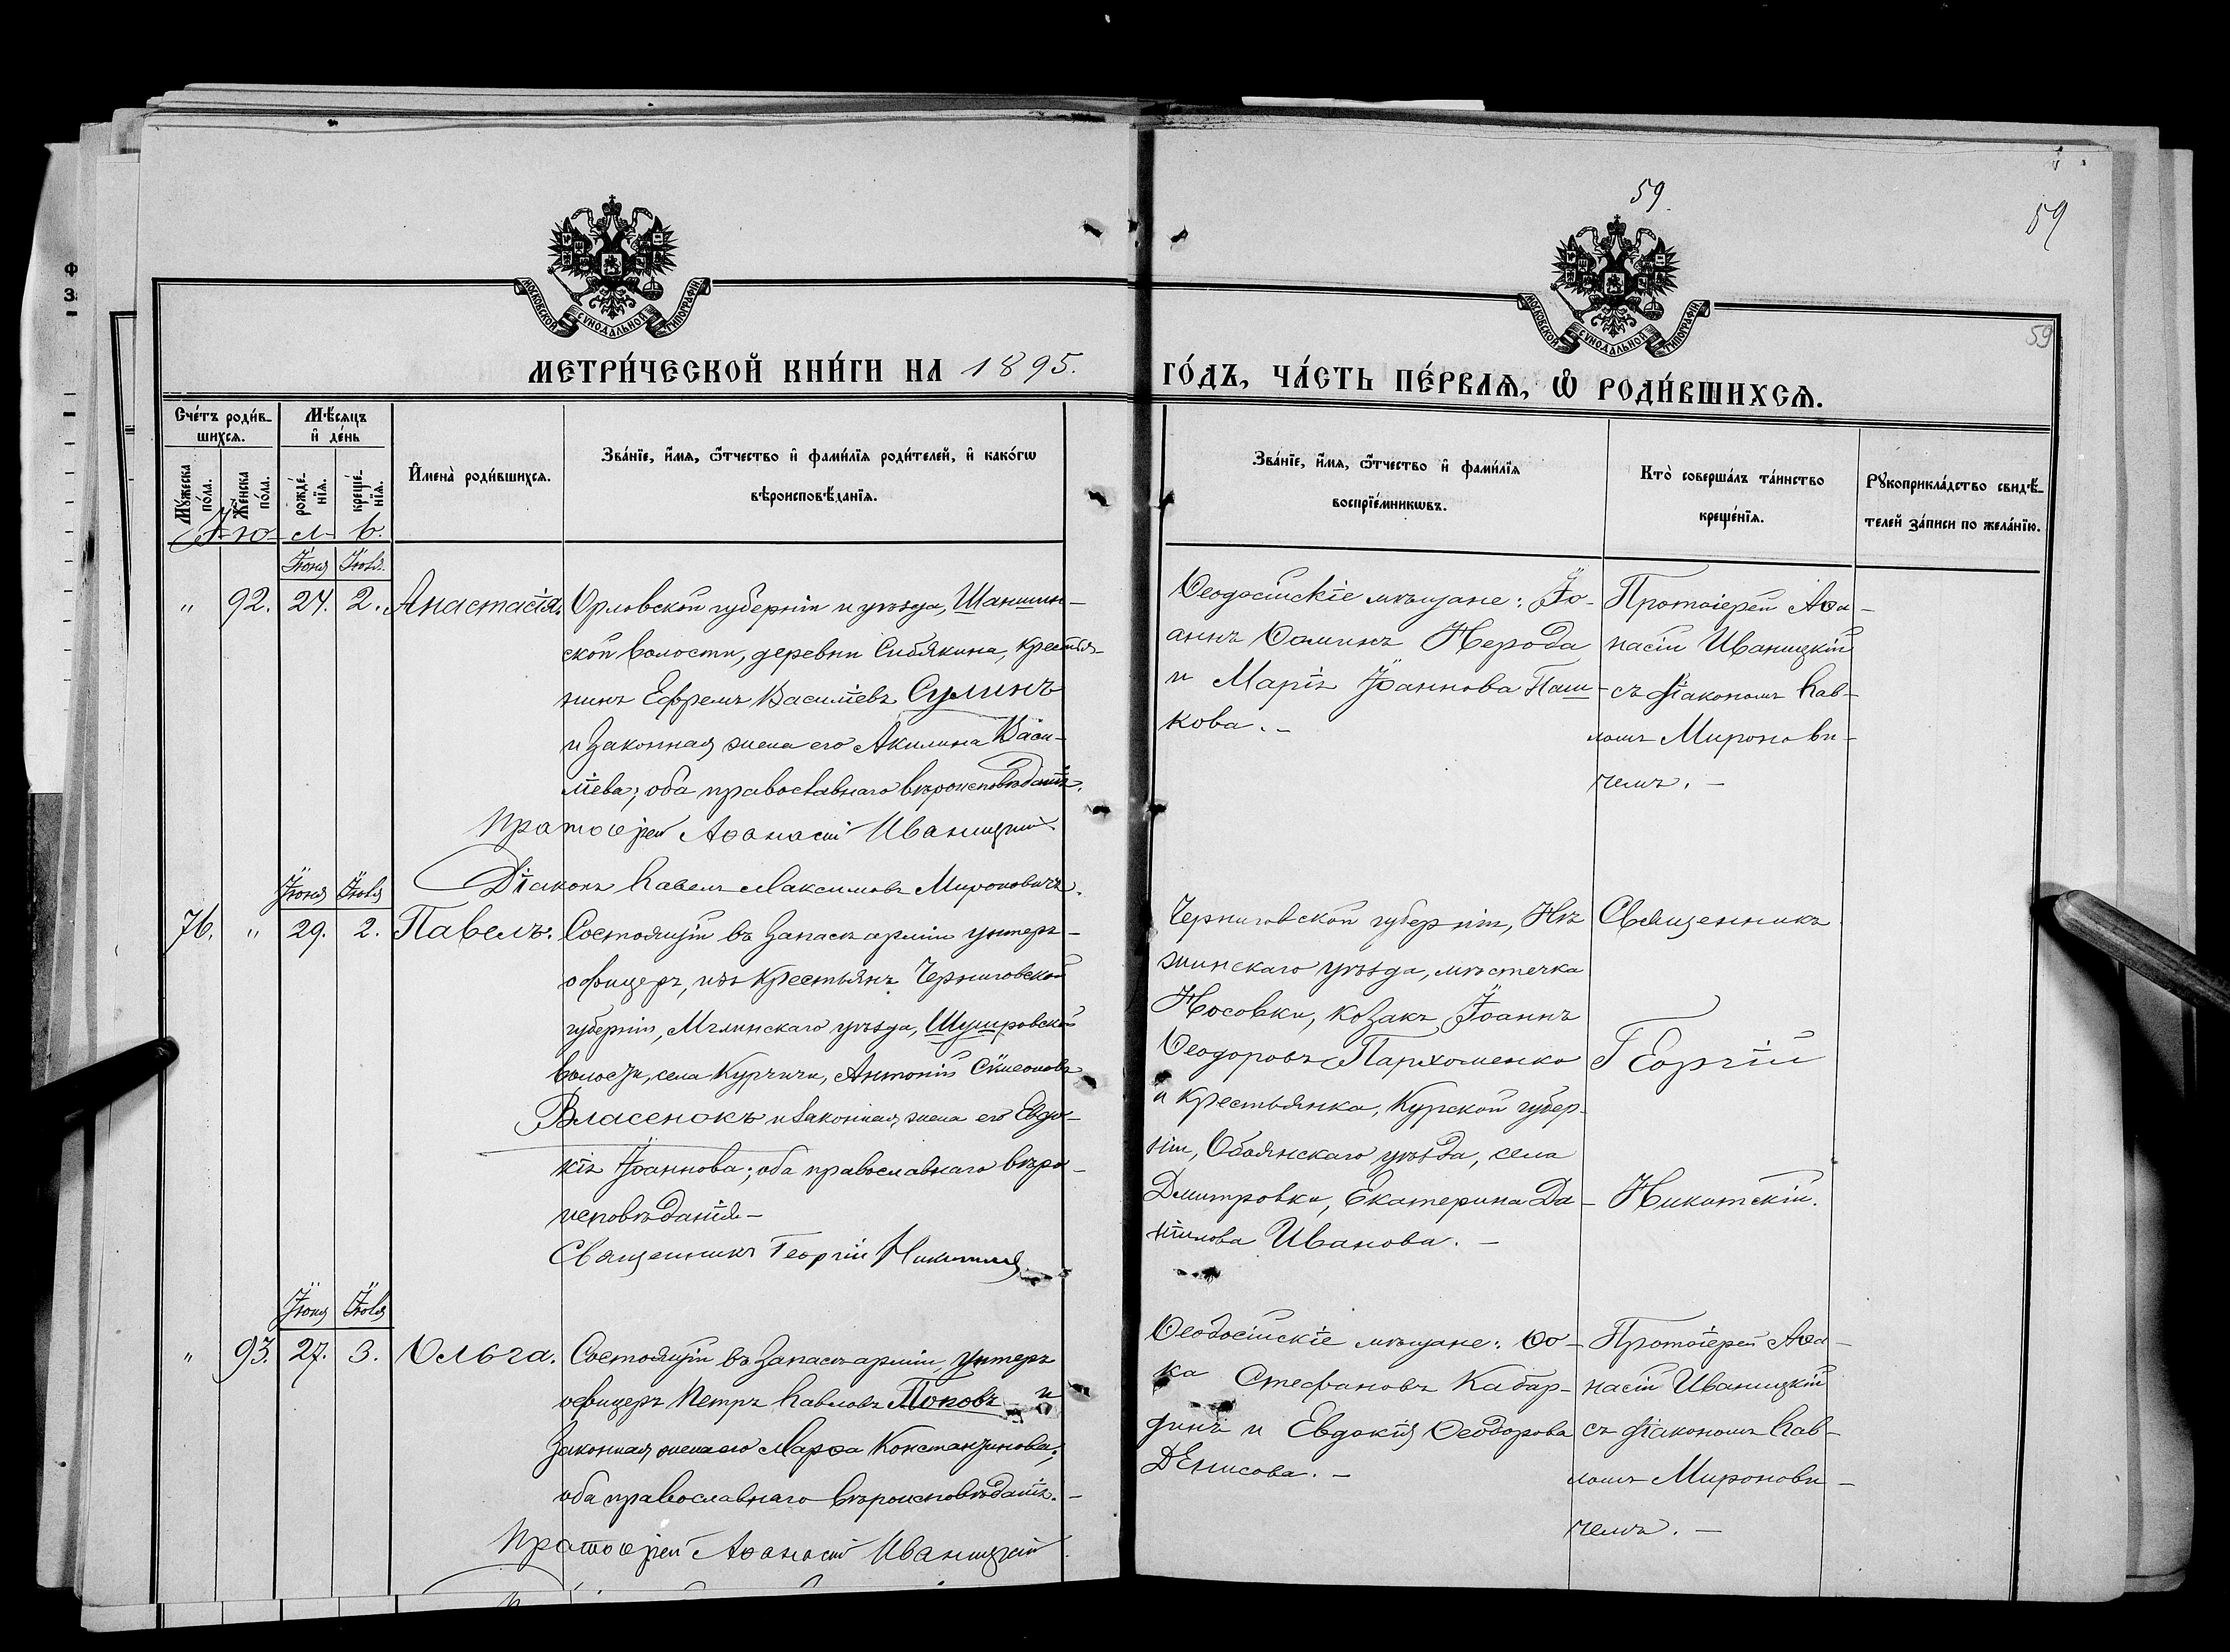 59.
59
59
МОСКОВСКОЙ СѴНОДАЛЬНОЙ ТИПОГРАФІИ
МОСКОВСКОЙ СѴНОДАЛЬНОЙ ТИПОГРАФІИ
МЕТРИ́ЧЕСКОЙ КНИ́ГИ НА 1895. ГО́ДЪ, ЧА́СТЬ ПЕ́РВАЯ, Ѽ РОДИ́ВШИХСЯ.
Сче́тъ роди́в-
шихся.
Мꙋжеска по́ла.
Же́нска по́ла.
Мѣ́сяцъ
и҆ де́нь
рожде́-
нїя.
креще́-
нїя.
И҆мена̀ роди́вшихся.
Зва́нїе, и҆́мя, ѻ҆́тчество и҆ фами́лїя роди́телей, и҆ како́гѡ
вѣроисповѣ́данїя.
Зва́нїе, и҆́мя, ѻ҆́тчество и҆ фами́лїя
воспрїе́мникѡвъ.
Кто̀ соверша́лъ та́инство
креще́нїя.
Рꙋкоприкла́дство свидѣ́-
телей за́писи по жела́нїю.
Іюль.
Іюня Іюля
" 92. 24. 2. Анастасія.
Орловской губерніи и уѣзда, Шаншин-
ской волости, деревни Сибякина, крестья-
нинъ Ефремъ Василіевъ Сулинъ
и законная жена его Акилина Васи-
ліева; оба православнаго вѣроисповѣданія.
Протоіерей Аѳанасій Иваницкій
Діаконъ Павелъ Максимовъ Мироновичъ.
Ѳеодосійскіе мѣщане: Іо-
аннъ Ѳоминъ Нерода
и Марія Іоаннова Паш-
кова. –
Протоіерей Аѳа-
насій Иваницкій
съ діакономъ Пав-
ломъ Миронови-
чемъ. –
Іюня Іюля
76. " 29. 2. Павелъ.
Состоящій въ запасѣ арміи унтеръ-
офицеръ, изъ крестьянъ Черниговской
губерніи, Мглинскаго уѣзда, Шумировской
волости, села Курчичи, Антоній Симеоновъ
Власенокъ и законная жена его Евдо-
кія Іоаннова; оба православнаго вѣро-
исповѣданія –
Священникъ Георгій Никитскій
Черниговской губерніи, Нѣ-
жинскаго уѣзда, мѣстечка
Носовки, козакъ Іоаннъ
Ѳеодоровъ Пархоменко
и крестьянка, Курской губер-
ніи, Обоянскаго уѣзда, села
Дмитровки, Екатерина Да-
ніилова Иванова. –
Священникъ
Георгій
Никитскій.
Іюня Іюля
" 93. 27. 3. Ольга.
Состоящій въ запасѣ арміи, унтеръ
офицеръ Петръ Павловъ Поповъ и
законная жена его Марѳа Константинова;
оба православнаго вѣроисповѣданія. –
Протоіерей Аѳанасій Иваницкій
Ѳеодосійскіе мѣщане: Ѳо-
ка Стефановъ Кабар-
динъ и Евдокія Ѳеодорова
Денисова. –
Протоіерей Аѳа-
насій Иваницкій
съ діакономъ Пав-
ломъ Миронови-
чемъ. –